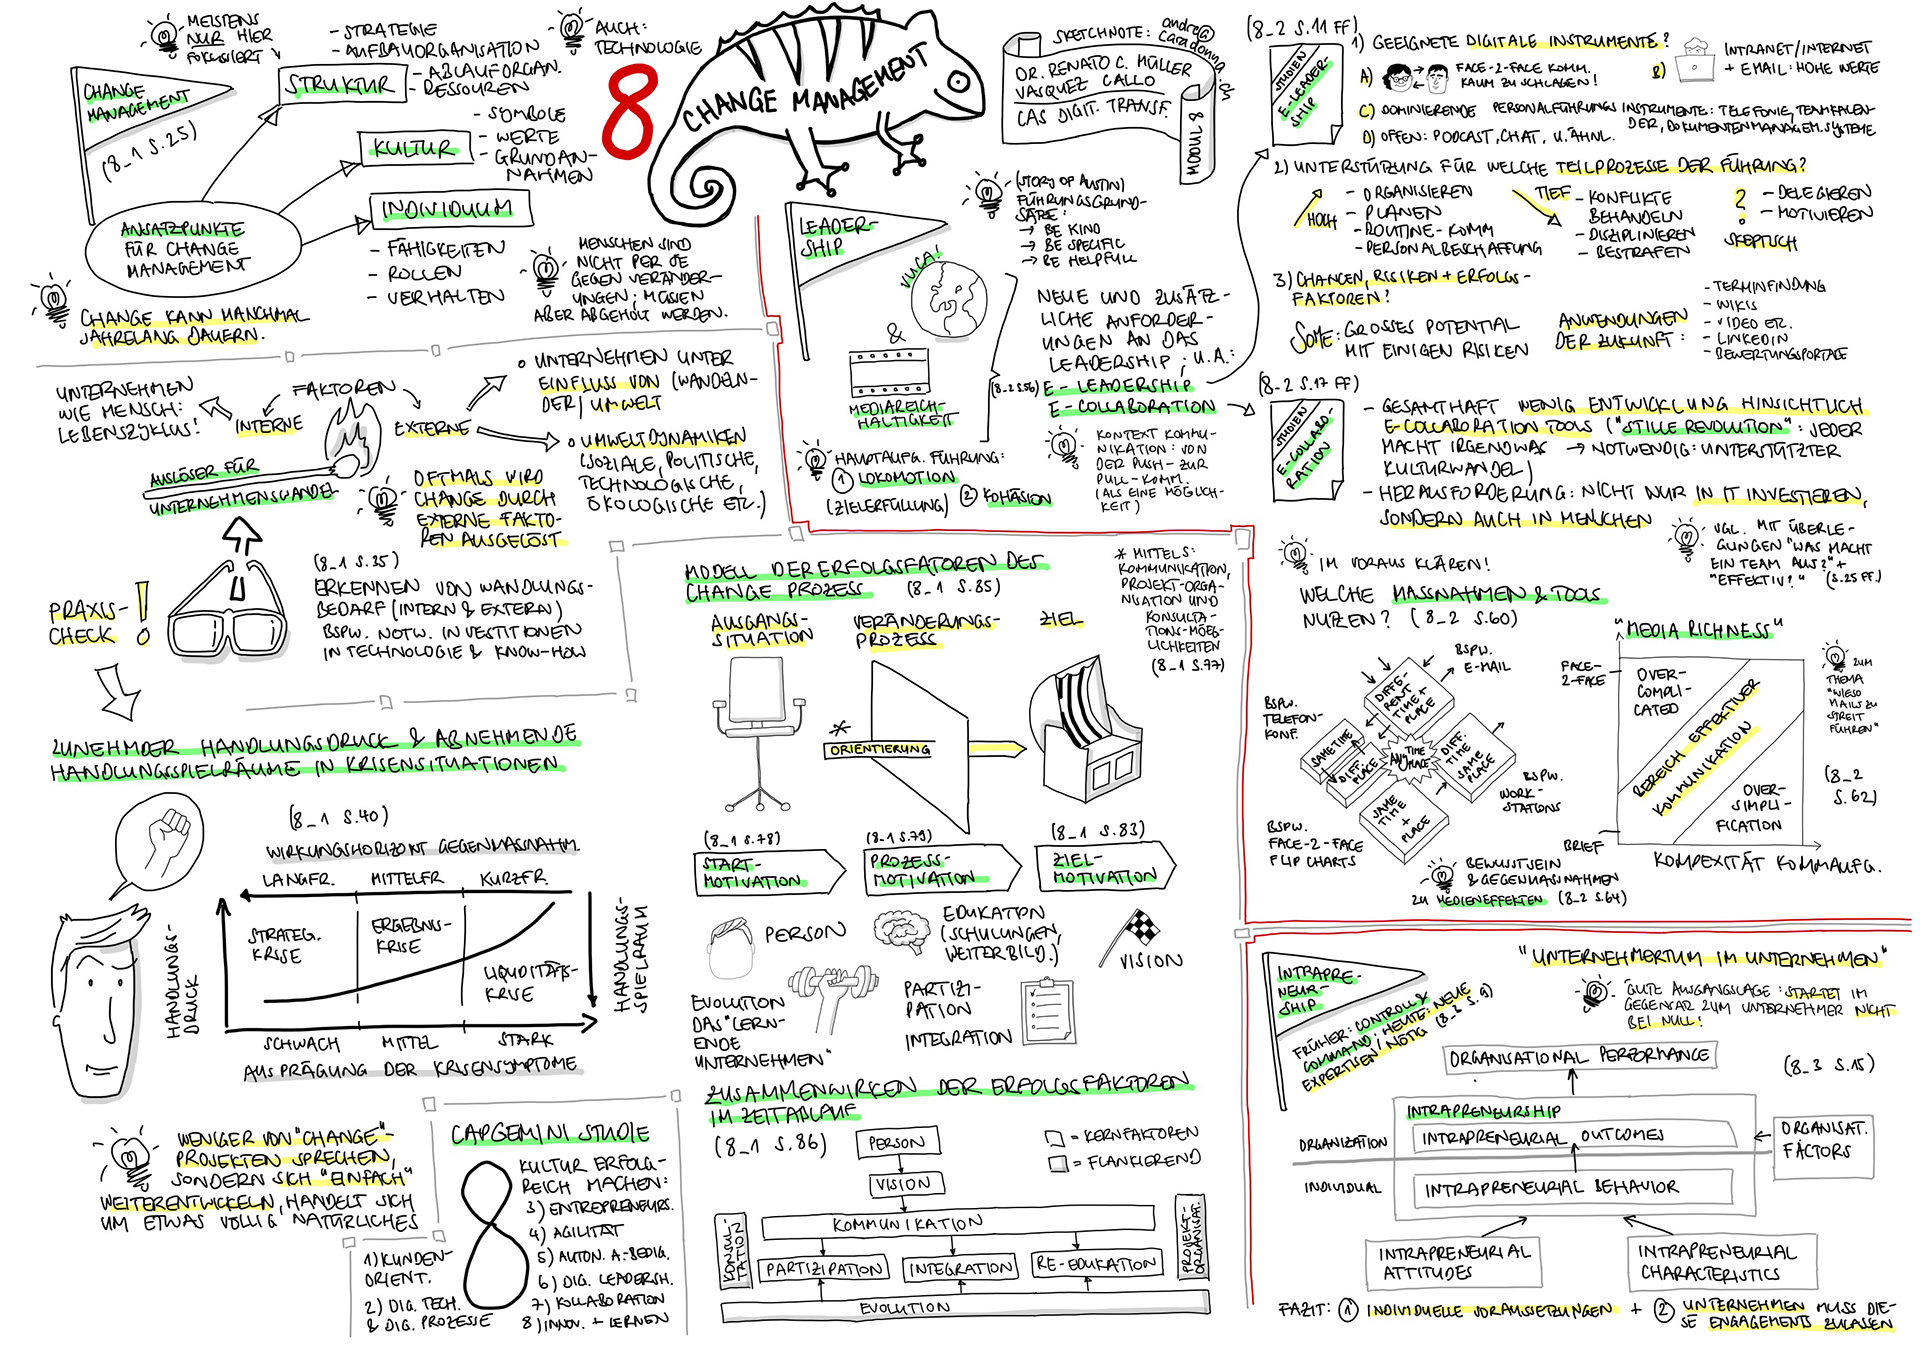 MEISTENS
NUR HIER
FOKUSSIERT
CHANGE
MANAGEMENT
(8_1 S.25)
STRUKTUR
- STRATEGIE
- AUFBAUORGANISATION
- ABLAUFORGAN.
- RESSOUREN
AUCH:
TECHNOLOGIE
KULTUR
- SYMBOLE
- WERTE
- GRUNDAN-
NAHMEN
INDIVIDUUM
- FÄHIGKEITEN
- ROLLEN
- VERHALTEN
ANSATZPUNKTE
FÜR CHANGE
MANAGEMENT
CHANGE KANN MANCHMAL
JAHRELANG DAUERN.
MENSCHEN SIND
NICHT PER SE
GEGEN VERÄNDER-
UNGEN; MÜSSEN
ABER ABGEHOLT WERDEN.
8
CHANGE MANAGEMENT
SKETCHNOTE: andrea@
caradonna.ch
DR. RENATO C. MÜLLER
VASQUEZ CALLO
CAS DIGIT. TRANSF.
MODUL 8
UNTERNEHMEN
WIE MENSCH:
LEBENSZYKLUS!
FAKTOREN
INTERNE
EXTERNE
AUSLÖSER FÜR
UNTERNEHMENSWANDEL
o UNTERNEHMEN UNTER
EINFLUSS VON (WANDELN-
DER) UMWELT
o UMWELTDYNAMIKEN
(SOZIALE, POLITISCHE,
TECHNOLOGISCHE,
ÖKOLOGISCHE ETC.)
OFTMALS WIRD
CHANGE DURCH
EXTERNE FAKTO-
REN AUSGELÖST
PRAXIS-
CHECK !
(8_1 S.35)
ERKENNEN VON WANDLUNGS-
BEDARF (INTERN & EXTERN)
BSPW. NOTW. INVESTITIONEN
IN TECHNOLOGIE & KNOW-HOW
ZUNEHMDER HANDLUNGSDRUCK & ABNEHMENDE
HANDLUNGSSPIELRÄUME IN KRISENSITUATIONEN
(8_1 S.40)
WIRKUNGSHORIZONT GEGENMASSNAHM.
LANGFR. MITTELFR. KURZFR.
HANDLUNGS-
DRUCK
STRATEG.
KRISE
ERGEBNIS-
KRISE
LIQUIDITÄTS-
KRISE
HANDLUNGS-
SPIELRAUM
SCHWACH MITTEL STARK
AUSPRÄGUNG DER KRISENSYMPTOME
WENIGER VON "CHANGE"-
PROJEKTEN SPRECHEN,
SONDERN SICH "EINFACH"
WEITERENTWICKELN, HANDELT SICH
UM ETWAS VÖLLIG NATÜRLICHES
CAPGEMINI STUDIE
KULTUR ERFOLG-
REICH MACHEN:
1) KUNDEN-
ORIENT.
2) DIG. TECH.
& DIG. PROZESSE
3) ENTREPRENEURS.
4) AGILITÄT
5) AUTON. A.-BEDIG.
6) DIG. LEADERSH.
7) KOLLABORATION
8) INNOV. + LERNEN
LEADER-
SHIP
VUCA!
&
MEDIAREICH-
HALTIGKEIT
(STORY OF AUSTIN)
FÜHRUNGSGRUND-
SÄTZE:
→ BE KIND
→ BE SPECIFIC
→ BE HELPFULL
NEUE UND ZUSÄTZ-
LICHE ANFORDER-
UNGEN AN DAS
LEADERSHIP; U.A.:
(8_2 S.56)
E-LEADERSHIP
E-COLLABORATION
HAUPTAUFG. FÜHRUNG:
① LOKOMOTION
(ZIELERFÜLLUNG) ② KOHÄSION
KONTEXT KOMMU-
NIKATION: VON
DER PUSH- ZUR
PULL-KOMM.
(ALS EINE MÖGLICH-
KEIT)
MODELL DER ERFOLGSFATOREN DES
CHANGE PROZESS (8_1 S.85)
AUSGANGS-
SITUATION
VERÄNDERUNGS-
PROZESS
ZIEL
* MITTELS:
KOMMUNIKATION,
PROJEKT-ORGA-
NISATION UND
KONSULTA-
TIONS-MÖEG-
LICHKEITEN
(8_1 S.77)
*
ORIENTIERUNG
(8_1 S.78)
START-
MOTIVATION
(8_1 S.79)
PROZESS-
MOTIVATION
(8_1 S.83)
ZIEL-
MOTIVATION
PERSON
EDUKATION
(SCHULUNGEN,
WEITERBILD.)
VISION
EVOLUTION
DAS "LERN-
ENDE
UNTERNEHMEN"
PARTIZI-
PATION
INTEGRATION
ZUSAMMENWIRKEN DER ERFOLGSFAKTOREN
IM ZEITABLAUF
(8_1 S.86)
PERSON
VISION
= KERNFAKTOREN
= FLANKIEREND
KONSUL-
TATION
KOMMUNIKATION
PARTIZIPATION
INTEGRATION
RE-EDUKATION
PROJEKT-
ORGANISAT.
EVOLUTION
(8_2 S.11 FF)
STUDIEN
E-LEADER-
SHIP
1) GEEIGNETE DIGITALE INSTRUMENTE?
A) FACE-2-FACE KOMM.
KAUM ZU SCHLAGEN!
B) INTRANET/INTERNET
+ EMAIL: HOHE WERTE
C) DOMINIERENDE PERSONALFÜHRUNGSINSTRUMENTE: TELEFONIE, TEAMKALEN-
DER, DOKUMENTENMANAGEM.SYSTEME
D) OFFEN: PODCAST, CHAT, U. ÄHNL.
2) UNTERSTÜTZUNG FÜR WELCHE TEILPROZESSE DER FÜHRUNG?
HOCH
- ORGANISIEREN
- PLANEN
- ROUTINE-KOMM
- PERSONALBESCHAFFUNG
TIEF
- KONFLIKTE
BEHANDELN
- DISZIPLINIEREN
- BESTRAFEN
?
SKEPTISCH
- DELEGIEREN
- MOTIVIEREN
3) CHANCEN, RISIKEN + ERFOLGS-
FAKTOREN?
SOME: GROSSES POTENTIAL
MIT EINIGEN RISIKEN
ANWENDUNGEN
DER ZUKUNFT:
- TERMINFINDUNG
- WIKIS
- VIDEO ETC.
- LINKEDIN
- BEWERTUNGSPORTALE
(8_2 S.17 FF)
STUDIEN
E-COLLABO-
RATION
- GESAMTHAFT WENIG ENTWICKLUNG HINSICHTLICH
E-COLLABORATION TOOLS ("STILLE REVOLUTION": JEDER
MACHT IRGENDWAS → NOTWENDIG: UNTERSTÜTZTER
KULTURWANDEL)
- HERAUSFORDERUNG: NICHT NUR IN IT INVESTIEREN,
SONDERN AUCH IN MENSCHEN
VGL. MIT ÜBERLE-
GUNGEN "WAS MACHT
EIN TEAM AUS?" +
"EFFEKTIV?" (S.25 FF.)
IM VORAUS KLÄREN!
WELCHE MASSNAHMEN & TOOLS
NUTZEN? (8_2 S.60)
BSPW.
E-MAIL
BSPW.
TELEFON-
KONF.
DIFFE-
RENT
TIME +
PLACE
SAME TIME
+ DIFF.
PLACE
ANY TIME
PLACE
DIFF.
TIME +
SAME
PLACE
SAME
TIME
+
PLACE
BSPW.
WORK-
STATIONS
BSPW.
FACE-2-FACE
FLIP CHARTS
BEWUSSTSEIN
& GEGENMASSNAHMEN
ZU MEDIENEFFEKTEN (8_2 S.64)
"MEDIA RICHNESS"
FACE-
2-FACE
OVER-
COMPLI-
CATED
BEREICH EFFEKTIVER
KOMMUNIKATION
OVER-
SIMPLI-
FICATION
BRIEF
KOMPEXITÄT KOMMAUFG.
ZUM
THEMA
"WIESO
MAILS ZU
STREIT
FÜHREN"
(8_2
S.62)
INTRAPRE-
NEUR-
SHIP
FRÜHER: CONTROLL &
COMMAND; HEUTE: NEUE
EXPERTISEN NÖTIG (8_3 S.9)
"UNTERNEHMERTUM IM UNTERNEHMEN"
GUTE AUSGANGSLAGE: STARTET IM
GEGENSATZ ZUM UNTERNEHMER NICHT
BEI NULL!
ORGANISATIONAL PERFORMANCE
(8_3 S.15)
INTRAPRENEURSHIP
ORGANIZATION
INTRAPRENEURIAL OUTCOMES
ORGANISAT.
FACTORS
INDIVIDUAL
INTRAPRENEURIAL BEHAVIOR
INTRAPRENEURIAL
ATTITUDES
INTRAPRENEURIAL
CHARACTERISTICS
FAZIT: ① INDIVIDUELLE VORAUSSETZUNGEN + ② UNTERNEHMEN MUSS DIE-
SE ENGAGEMENTS ZULASSEN